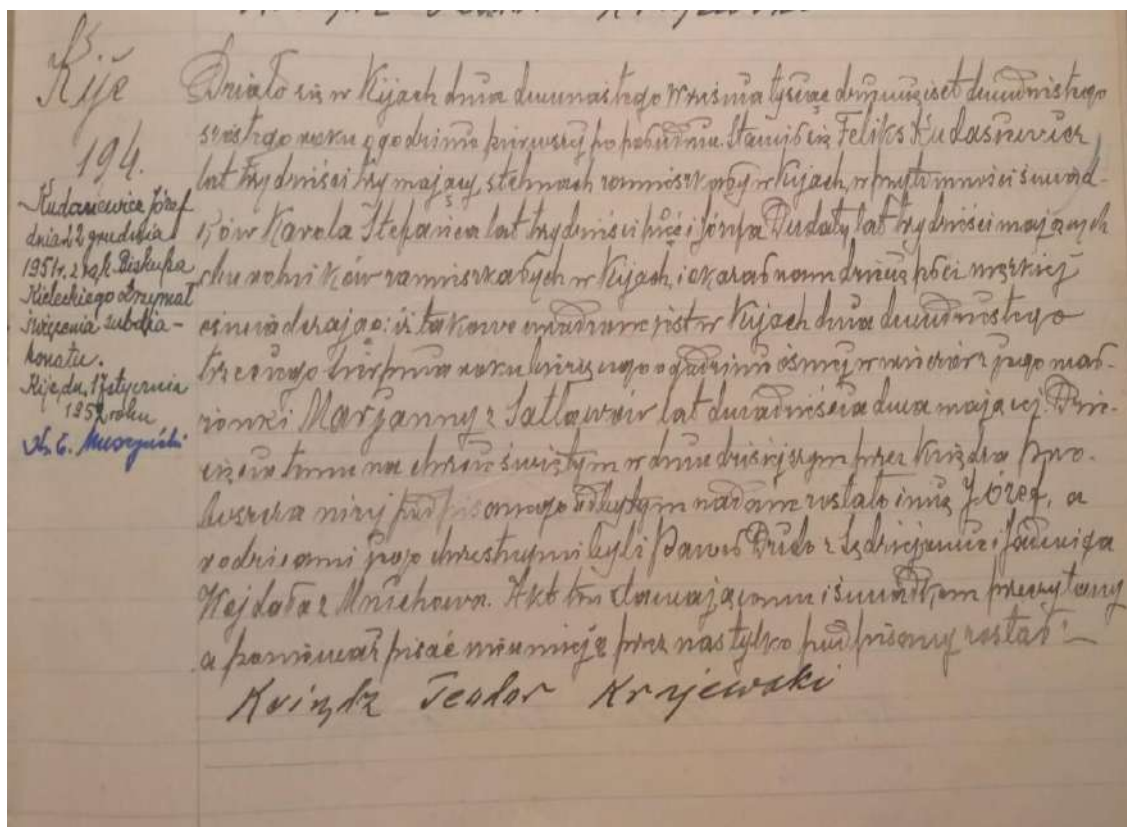 Kije
194.
Kudasiewicz Józef
dnia 22 grudnia
1951 r. z rąk Biskupa
Kieleckiego otrzymał
święcenia subdia-
konatu.
Kije, dn. 17 stycznia
1952 roku
Ks. E. Muszyński
Działo się w Kijach dnia dwunastego Września tysiąc dziewięćset dwudziestego
szóstego roku o godzinie pierwszej po południu. Stawił się Feliks Kudasiewicz
lat trzydzieści trzy mający, stelmach zamieszkały w Kijach, w przytomności świad-
ków Karola Stefańca lat trzydzieści i Józefa Dudały lat trzydzieści mających
obu rolników zamieszkałych w Kijach, i okazał nam dziecię płci męzkiej
oświadczając: iż takowe urodzone jest w Kijach dnia dwudziestego
trzeciego Sierpnia roku bieżącego o godzinie ósmej wieczór z jego mał-
żonki Marjanny z Satławów lat dwadzieścia dwa mającej. Dzie-
cięciu temu na chrzcie świętym w dniu dzisiejszym przez Księdza Pro-
boszcza niżej podpisanego odbytym nadane zostało imię Józef, a
rodzicami jego chrzestnymi byli Paweł Dudo z Sędziejowic i Jadwiga
Wojdała z Mnichowa. Akt ten stawającemu i świadkom przeczytany
a ponieważ pisać nie umieją przez nas tylko podpisany został
Ksiądz Teodor Krajewski